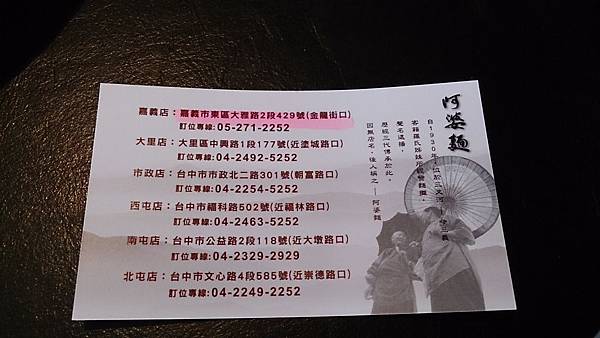 阿婆麵
自1930年
客籍羅氏姊妹所經營麵攤，
聲名遠播，
歷經三代傳承於此，
因無店名，後人稱之─阿婆麵
嘉義店：嘉義市東區大雅路2段429號(金龍街口)
訂位專線:05-271-2252
大里店：大里區中興路1段177號(近塗城路口)
訂位專線:04-2492-5252
市政店：台中市市政北二路301號(朝富路口)
訂位專線:04-2254-5252
西屯店：台中市福科路502號(近福林路口)
訂位專線:04-2463-5252
南屯店：台中市公益路2段118號(近大墩路口)
訂位專線:04-2329-2929
北屯店：台中市文心路4段585號(近崇德路口)
訂位專線:04-2249-2252